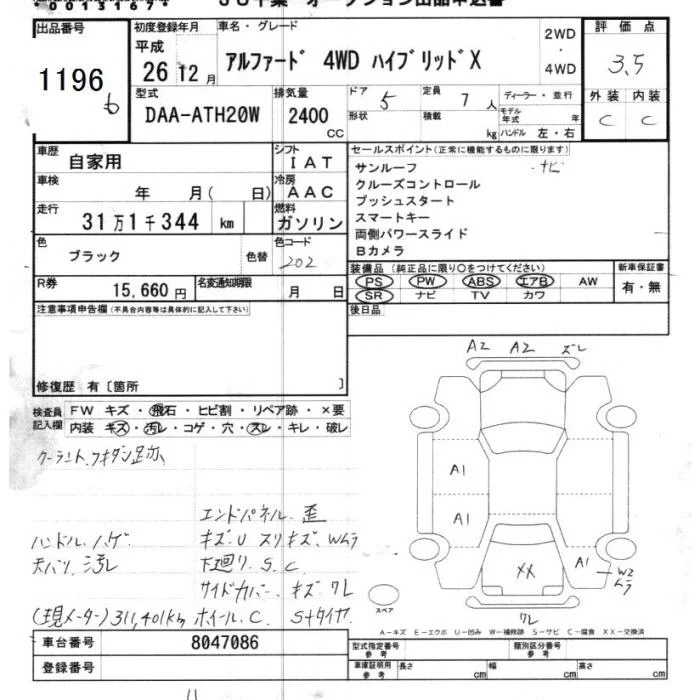 00131674 JU千葉 オークション出品申込書
出品番号 1196 6
初度登録年月 平成 26年12月
車名・グレード アルファード 4WD ハイブリッドX 2WD・4WD
評価点 3.5
外装 C 内装 C
型式 DAA-ATH20W
排気量 2400 CC
ドア 5 定員 7人
形状 積載 kg
ディーラー・並行
モデル年式 年
ハンドル 左・右
車歴 自家用
シフト IAT
車検 年 月( 日)
冷房 AAC
走行 31万1千344 km
燃料 ガソリン
色 ブラック 色替
色コード 202
R券 15,660円
名変通知期限 月 日
セールスポイント(正常に機能するものに限ります)
サンルーフ ナビ
クルーズコントロール
プッシュスタート
スマートキー
両側パワースライド
Bカメラ
装備品(純正品に限り○をつけてください)
PS PW ABS エアB AW
SR ナビ TV カワ
新車保証書 有・無
後日品
注意事項申告欄(不具合内容等は具体的に記入して下さい)
修復歴 有〔箇所 〕
検査員記入欄
FW キズ・飛石・ヒビ割・リペア跡・×要
内装 キズ・汚レ・コゲ・穴・スレ・キレ・破レ
クーラント、フキダシ足跡
エンドパネル、歪
ハンドル、ハゲ キズ、U スリキズ、Wムラ
天バリ、汚レ 下廻り、S、C
サイドカバー、キズ、ワレ
(現メーター)311,401km ホイール、C、 S+タイヤ
A2 A2 ズレ
A1
A1
A1 W2 ムラ
XX
ワレ
スペア
A-キズ E-エクボ U-凹み W-補修跡 S-サビ C-腐食 XX-交換済
車台番号 8047086
登録番号
型式指定番号 参考
類別区分番号 参考
車庫証明用 参考 長さ cm 幅 cm 高さ cm